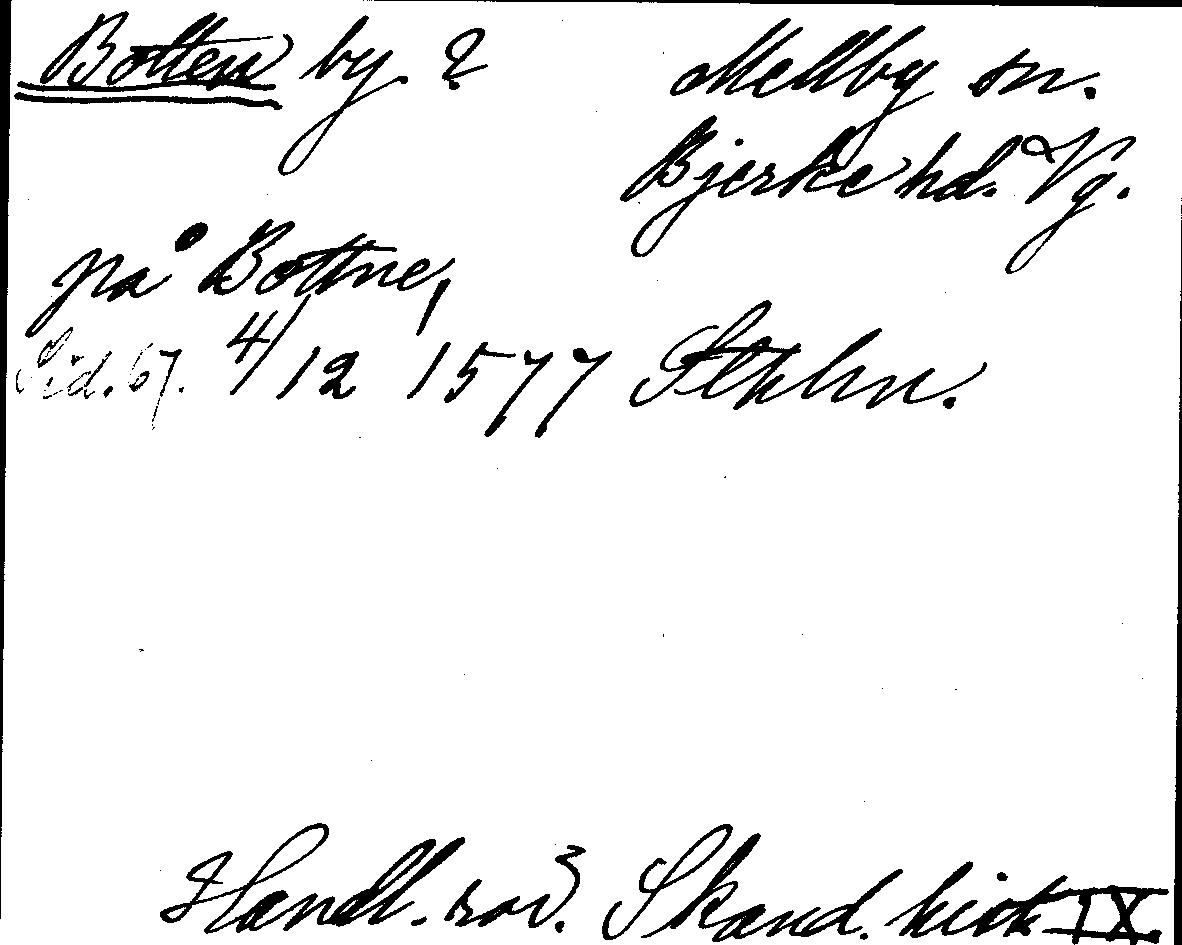 Botten by. ? Mellby sn.
Bjerke hd. Vg.
på Bottne,
Sid. 67. 4/12 1577 Sthlm.
Handl. rör. Skand. hist. IX.